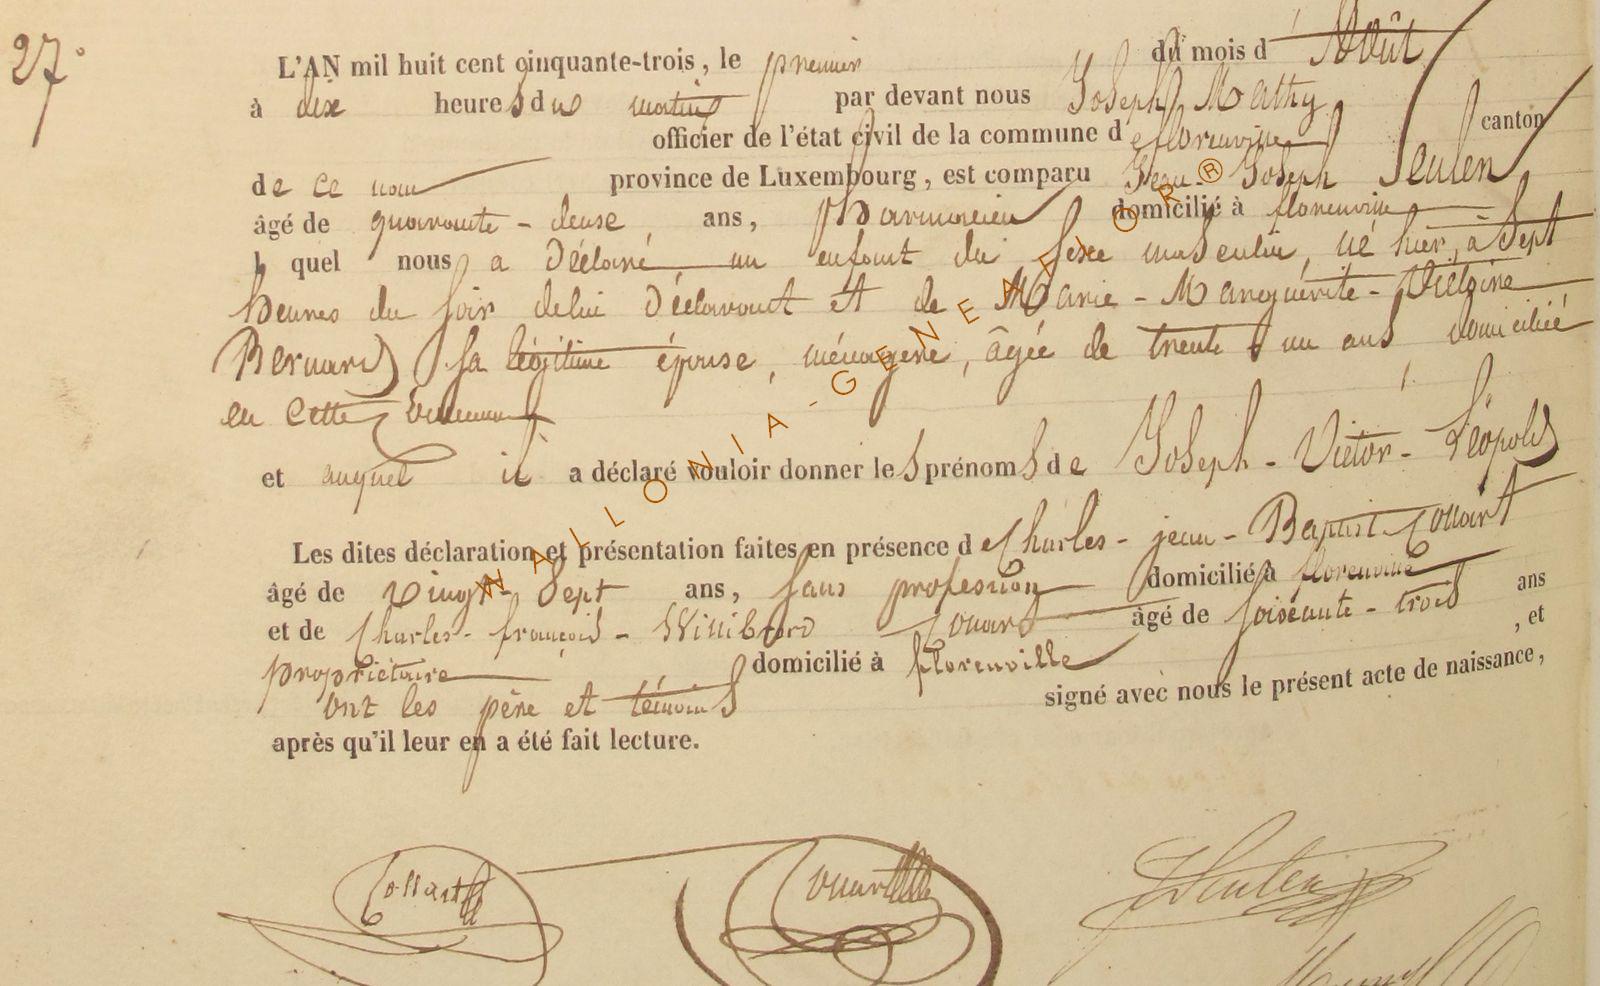 27°
L'AN mil huit cent cinquante-trois, le premier du mois d'Août
à dix heures du matin par devant nous Joseph Mathy
officier de l'état civil de la commune de florenville canton
de ce nom province de Luxembourg, est comparu Jean-Joseph
âgé de quarante-deuse ans, Pharmacien domicilié à florenville
l quel nous a Déclaré, un enfant du sexe masculin, né hier, à Sept
heures du soir de lui Déclarant et de Marie-Marguérite-Victoire
Bernard sa légitime épouse, ménagère, âgée de trente & un ans domiciliée
en cette Commune
et auquel il a déclaré vouloir donner les prénoms de Joseph-Victor-Léopold
Les dites déclaration et présentation faites en présence de Charles-jean-Baptist Collart
âgé de vingt-Sept ans, sans profession domicilié à florenville
et de Charles-françois-Willibrord Collart âgé de soixante-trois ans
propriétaire domicilié à florenville, et
ont les père et témoins signé avec nous le présent acte de naissance,
après qu'il leur en a été fait lecture.
WALLONIA-GENEALOR®
Collart Collart